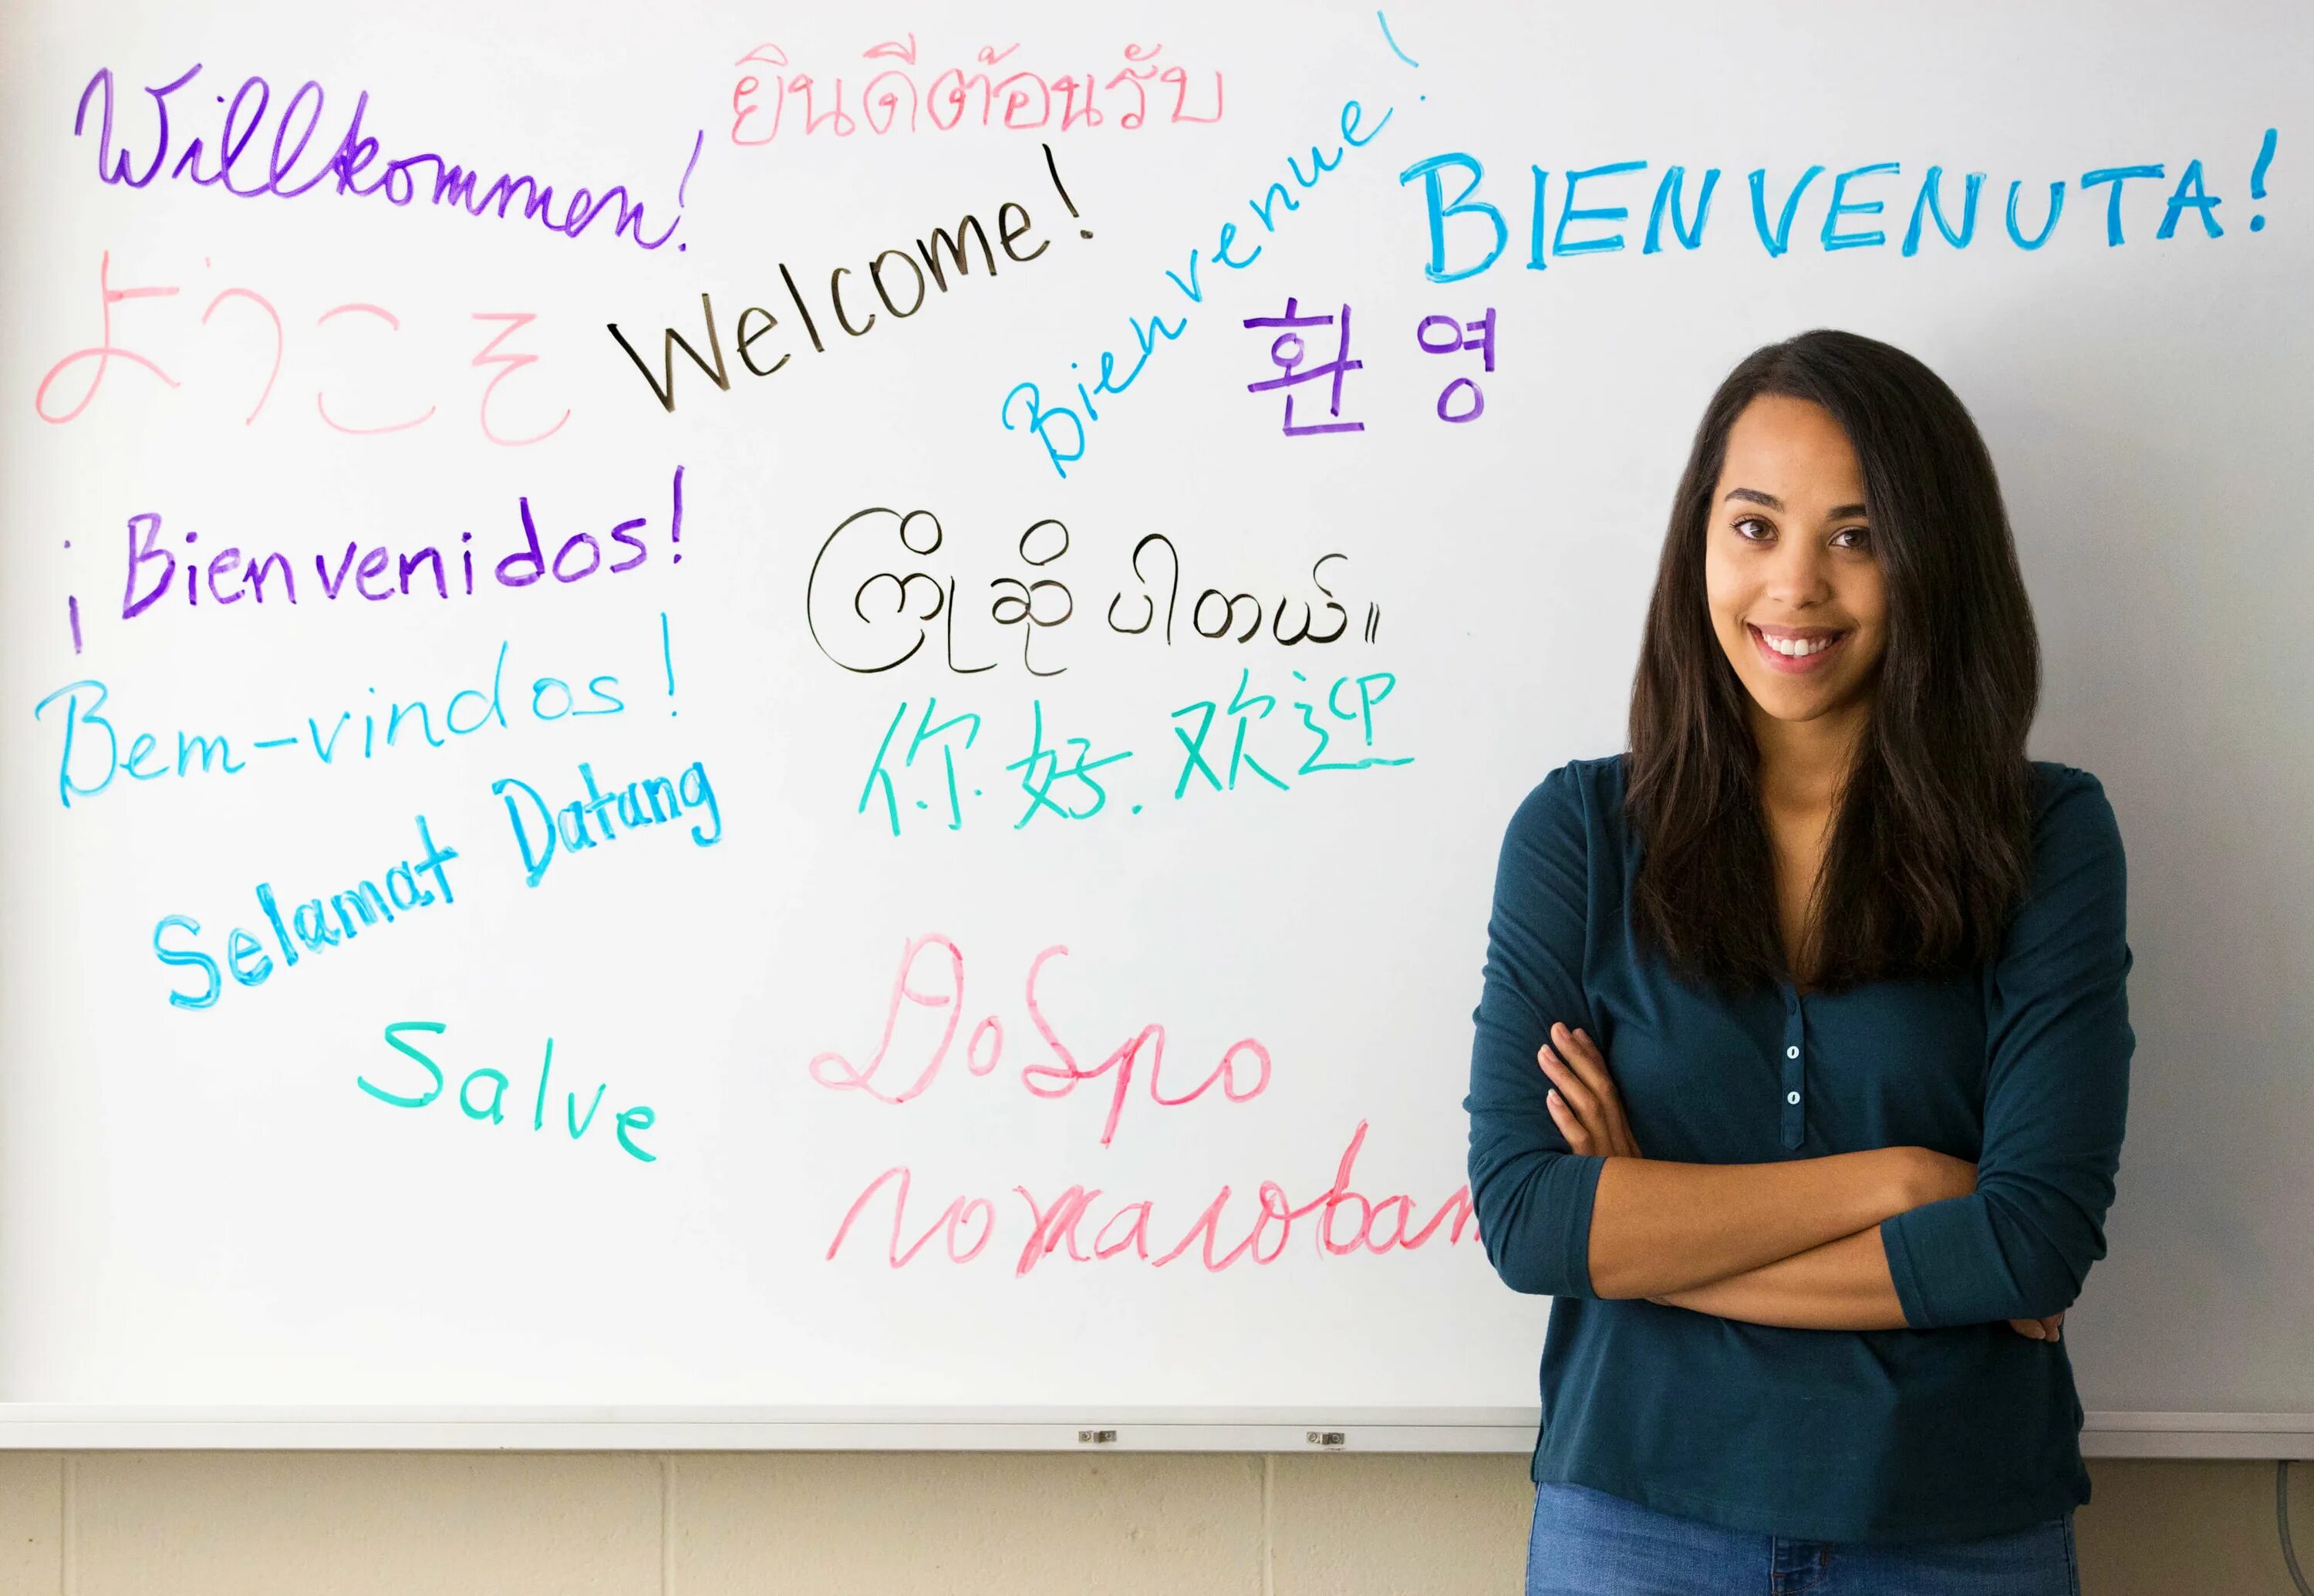 Willkommen!
ยินดีต้อนรับ
Bienvenue!
BIENVENUTA!
ようこそ
Welcome!
환영
¡Bienvenidos!
ကြိုဆိုပါတယ်။
Bem-vindos!
你好.欢迎
Selamat Datang
Добро
Salve
пожаловат